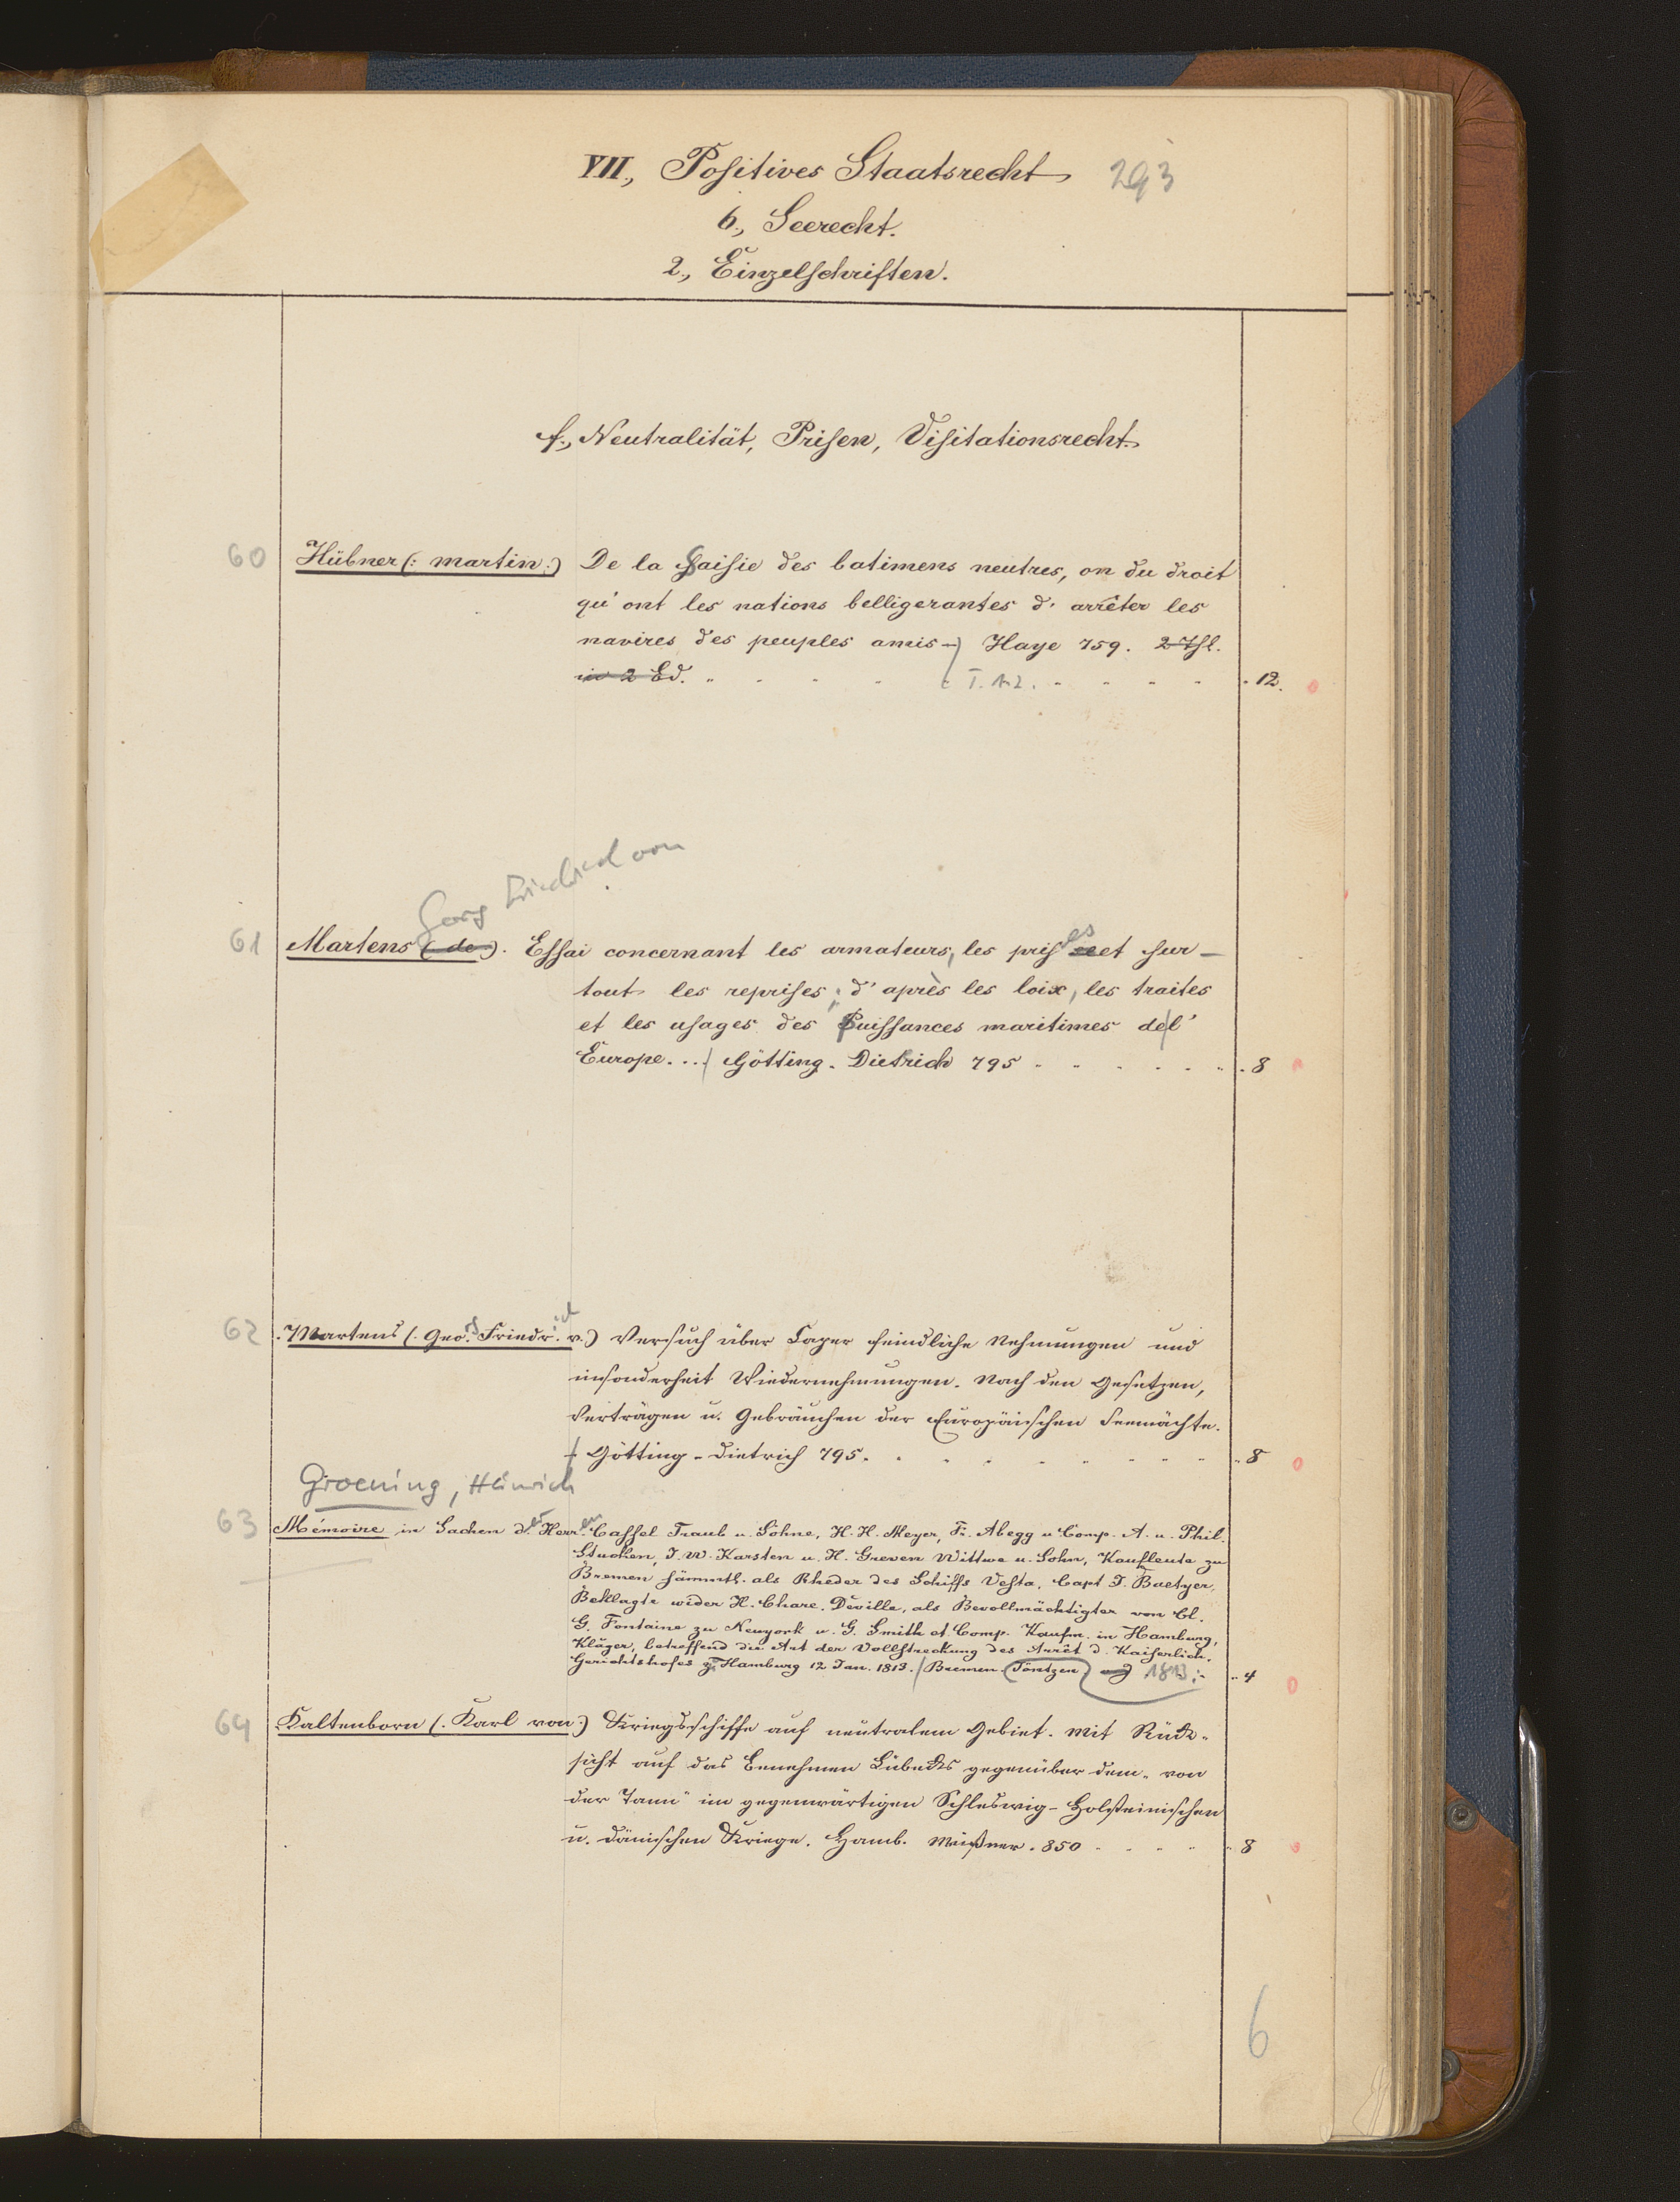 VII., Positives Staatsrecht 293
6., Seerecht.
2., Einzelschriften.
f., Neutralität, Prisen, Visitationsrecht.
60 Hübner (: Martin :) De la Saisie des batimens neutres, ou du droit
qu'ont les nations belligerantes d'arrêter les
navires des peuples amis -) Haye 759. 2 Thl.
in 2 Bd. T. 1.2. 12.
Georg Friedrich von
61 Martens (de). Essai concernant les armateurs, les prises et sur-
tout les reprises; d'après les loix, les traites
et les usages des Puissances maritimes de l'
Europe... Götting. Dietrich 795 8
62 Martens (. Georg Friedrich v.) Versuch über Caper feindliche Nehmungen und
insonderheit Wiedernehmungen. Nach den Gesetzen,
Verträgen u. Gebräuchen der Europäischen Seemächte.
Götting - Dietrich 795. 8
Groening, Heinrich
63 Mémoire in Sachen der Herren Cassel Traub u. Söhne, H. H. Meyer, Fr. Abegg u Comp. A. u. Phil.
Stucken, J. W. Karsten u. H. Greven Wittwe u. Sohn, Kaufleute zu
Bremen sämmtl. als Rheder des Schiffs Vesta, Capt J. Baetjer,
Beklagte wider H. Chare. Deville, als Bevollmächtigter von Cl.
G. Fontaine zu Newyork u. G. Smith et Comp. Kaufm. in Hamburg,
Kläger, betreffend die Art der Vollstreckung des Arrêt d. Kaiserlich.
Gerichtshofes z. Hamburg 12 Jan. 1813. Bremen (Jöntzen) 1813. 4
64 Kaltenborn (. Karl von.) Kriegsschiffe auf neutralem Gebiet. Mit Rück-
sicht auf das Benehmen Lübecks gegenüber dem „von
der Tann" im gegenwärtigen Schleswig-Holsteinischen
u. Dänischen Kriege. Hamb. Meißner. 850 8
6